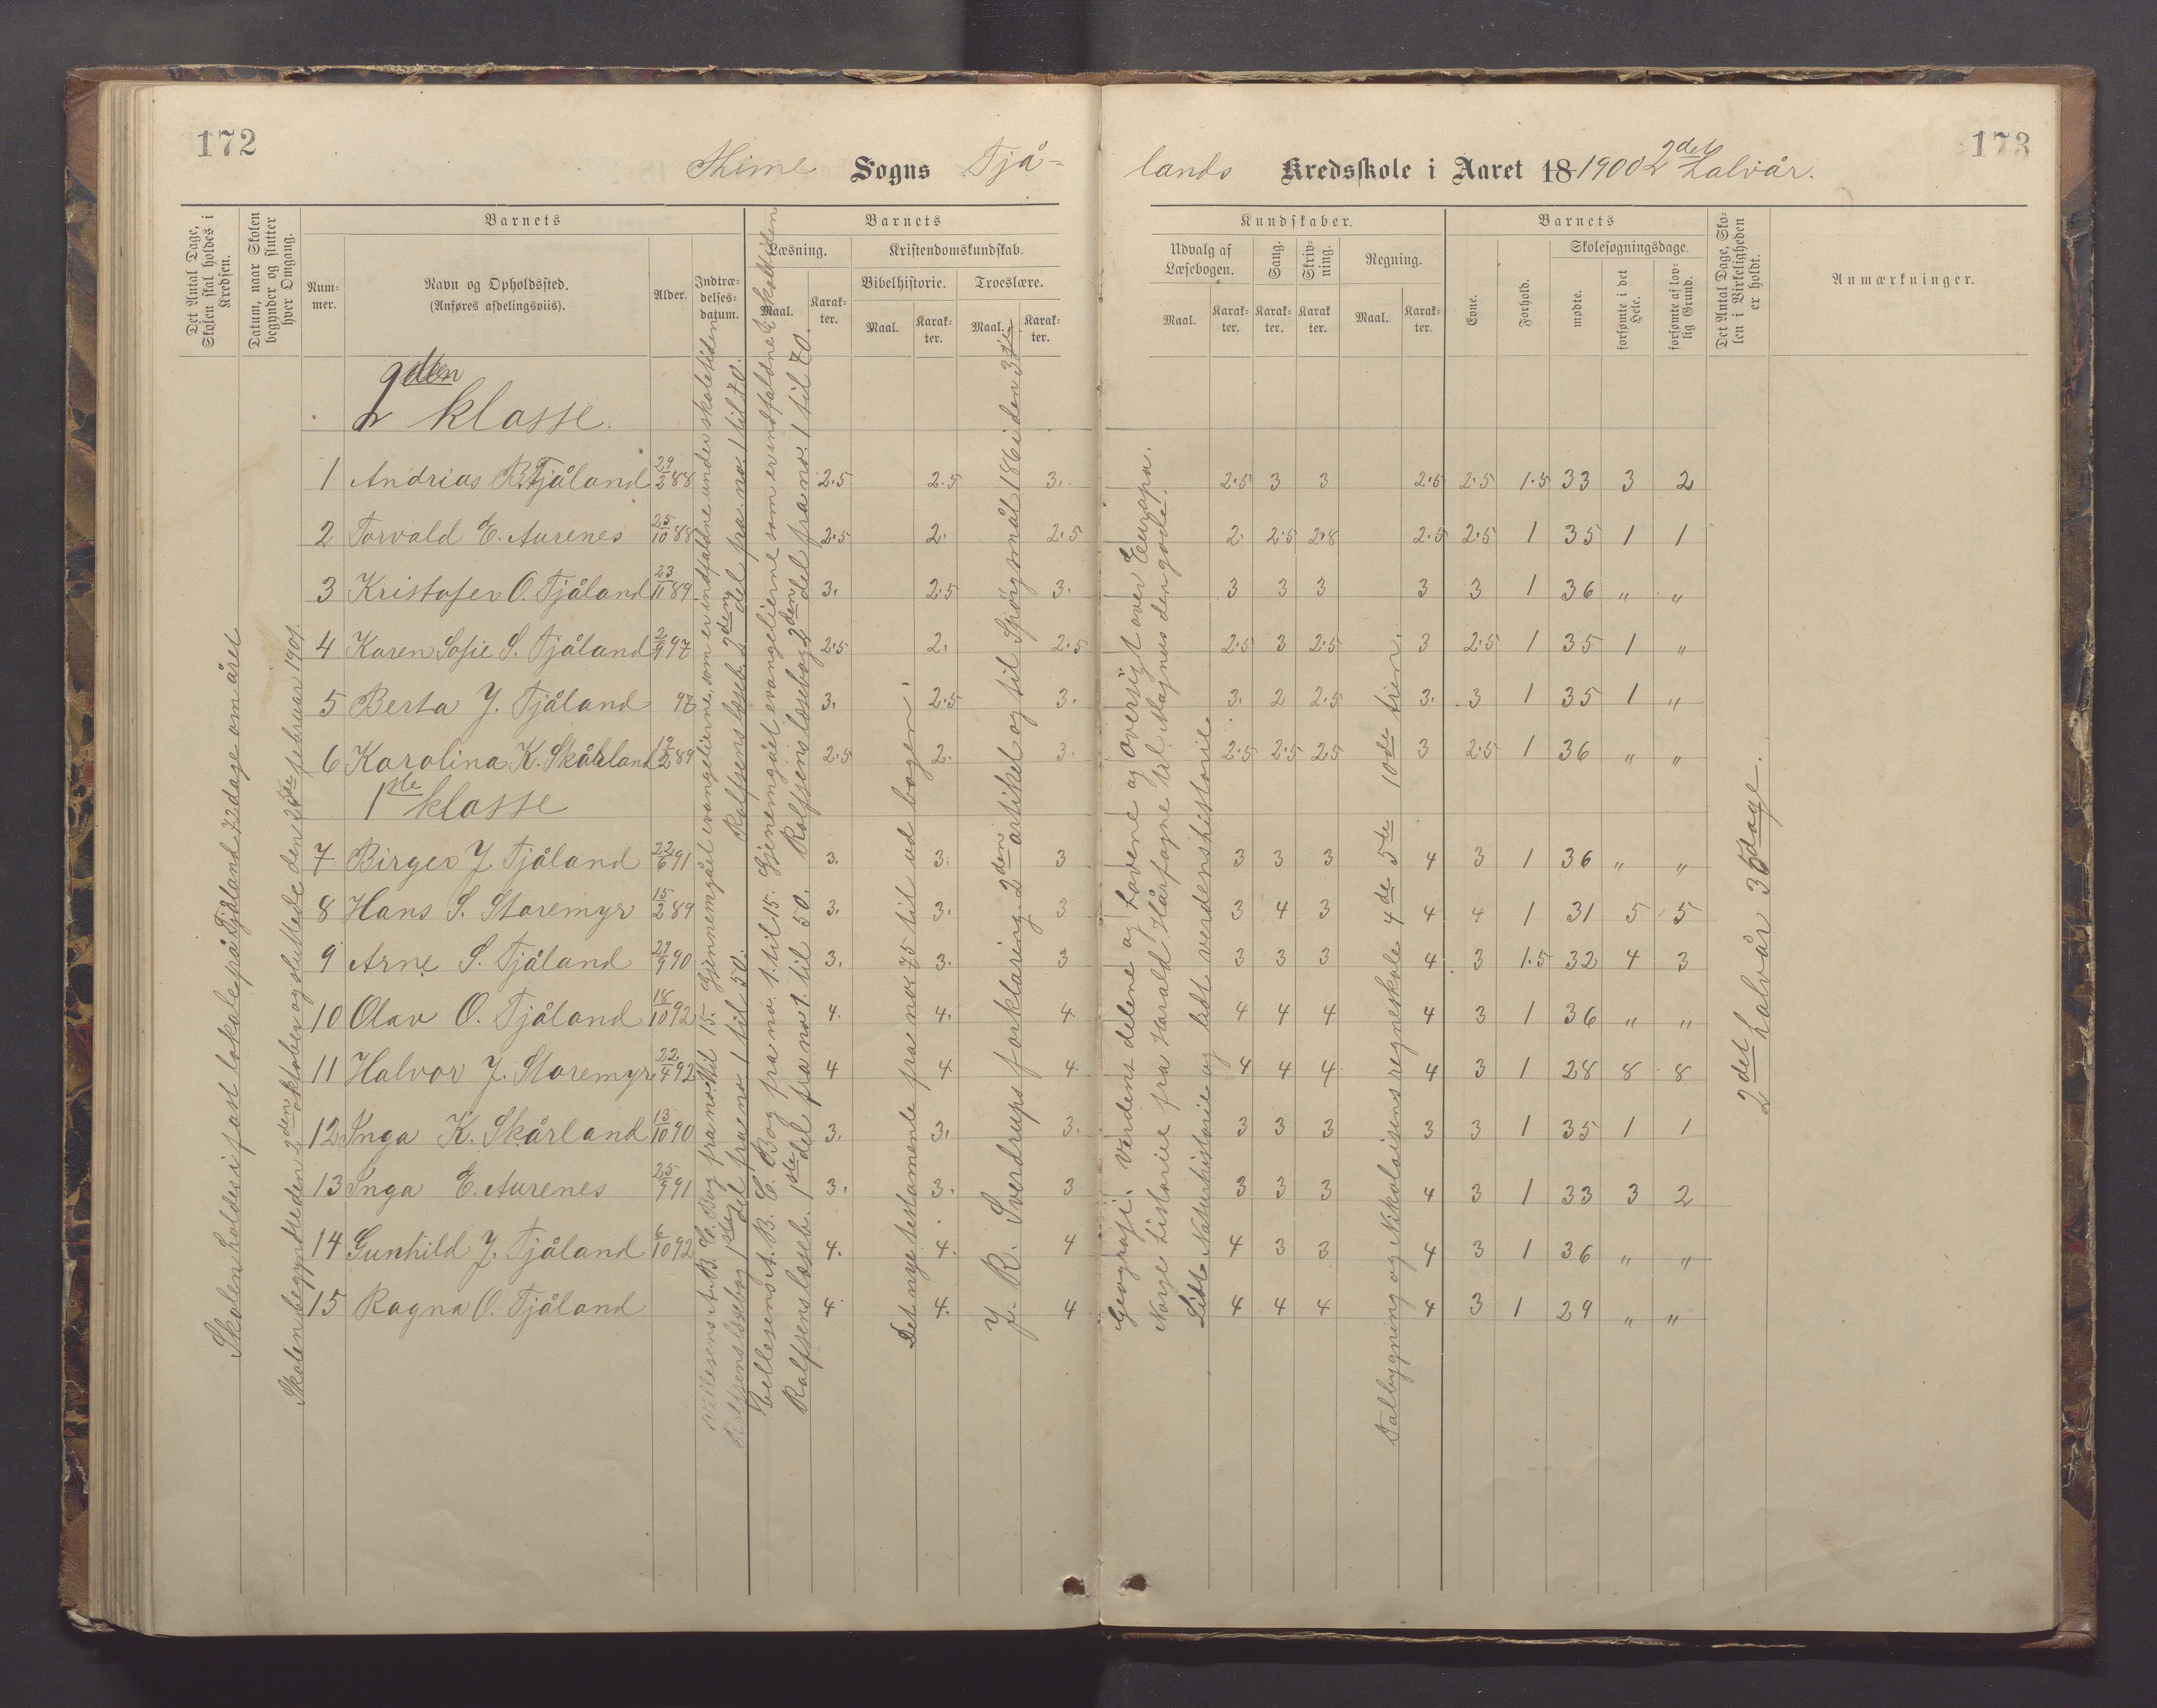 172
173
Thime Sogns Tjå-
lands Kredsskole i Aaret 18 1900 2det halvår.
Det Antal Dage, Skolen skal holdes i Kredsen.
Datum, naar Skolen begynder og slutter hver Omgang.
Barnets
Num-mer.
Navn og Opholdssted.
(Anføres afdelingsviis).
Alder.
Indtræ-delses-datum.
Barnets
Læsning.
Maal.
Karak-ter.
Kristendomskundskab.
Bibelhistorie.
Maal.
Karak-ter.
Troeslære.
Maal.
Karak-ter.
Kundskaber.
Udvalg af Læsebogen.
Maal.
Karak-ter.
Sang.
Karak-ter.
Skriv-ning.
Karak ter.
Regning.
Maal.
Karak-ter.
Barnets
Evne.
Forhold.
Skolesøgningsdage.
mødte.
forsømte i det Hele.
forsømte af lov-lig Grund.
Det Antal Dage, Sko-len i Virkeligheden er holdt.
Anmærkninger.
Skolen holdes i fast lokale på Tjåland 72 dage om året
Skolen begyndte den 2den oktober og sluttede den februar 1901.
2den klasse.
1 Andrias B. Tjåland 29/2 88 2.5 2.5 3. 2.5 3 3 2.5 2.5 1.5 33 3 2
2 Torvald E. Aurenes 25/10 88 2.5 2. 2.5 2. 2.5 2.8 2.5 2.5 1 35 1 1
3 Kristofer O. Tjåland 23/11 89 3. 2.5 3. 3 3 3 3 3 1 36 " "
4 Karen Sofie S. Tjåland 2/9 97 2.5 2. 2.5 2.5 3 2.5 3 2.5 1 35 1 "
5 Berta J. Tjåland 97 3. 2.5 3. 3. 2 2.5 3. 3 1 35 1 "
6 Karolina K. Skårland 19/2 89 2.5 2. 3. 2.5 2.5 2.5 3 2.5 1 36 " "
1ste klasse
7 Birger J. Tjåland 22/6 91 3. 3. 3 3 3 3 4 3 1 36 " "
8 Hans S. Storemyr 15/2 89 3. 3. 3 3 4 3 4 4 1 31 5 5
9 Arne S. Tjåland 29/9 90 3. 3. 3 3 3 3 4 3 1.5 32 4 3
10 Olav O. Tjåland 18/10 92 4. 4. 4 4 4 4 4 3 1 36 " "
11 Halvor J. Storemyr 22/4 92 4 4 4 4 4 4 4 3 1 28 8 8
12 Inga K. Skårland 13/10 90 3. 3. 3. 3 3 3 3 3 1 35 1 1
13 Inga E. Aurenes 25/9 91 3. 3. 3 3 3 3 4 3 1 33 3 2
14 Gunhild J. Tjåland 6/10 92 4. 4. 4 4 3 3 4 3 1 36 " "
15 Ragna O. Tjåland 4 4. 4 4 4 4 4 3 1 29 " "
A. B. C. Bog fra no. 1 til 15. Gjennemgået evangelierne, som er indfaldne under skoletiden.
Rolfsens læsebog 1ste del fra no 1 til 50. Rolfsens læseb. 2den del fra no. 1 til 70.
A. B. C. Bog fra no. 1. til 15. Gjenemgået evangelierne som er indfaldne i skoletiden
Rolfsens læseb. 1ste del fra no 1. til 50. Rolfsens læsebog 2den del fra no. 1 til 70.
Det nye testamente fra no. 75 til ud bogen.
J. R. Sverdrups forklaring. 2den artikel og til Spørgsmål 186 i den 3die
Geografi. Verdens delene og Havene og oversigt over Europa.
Norges historie fra Harald Hårfagre til Magnus den gode.
Lidt Naturhistorie og lidt verdenshistorie
Talbygning og Nikolaisens regneskole 4de 5de 10de trin.
2det halvår 36 dage.